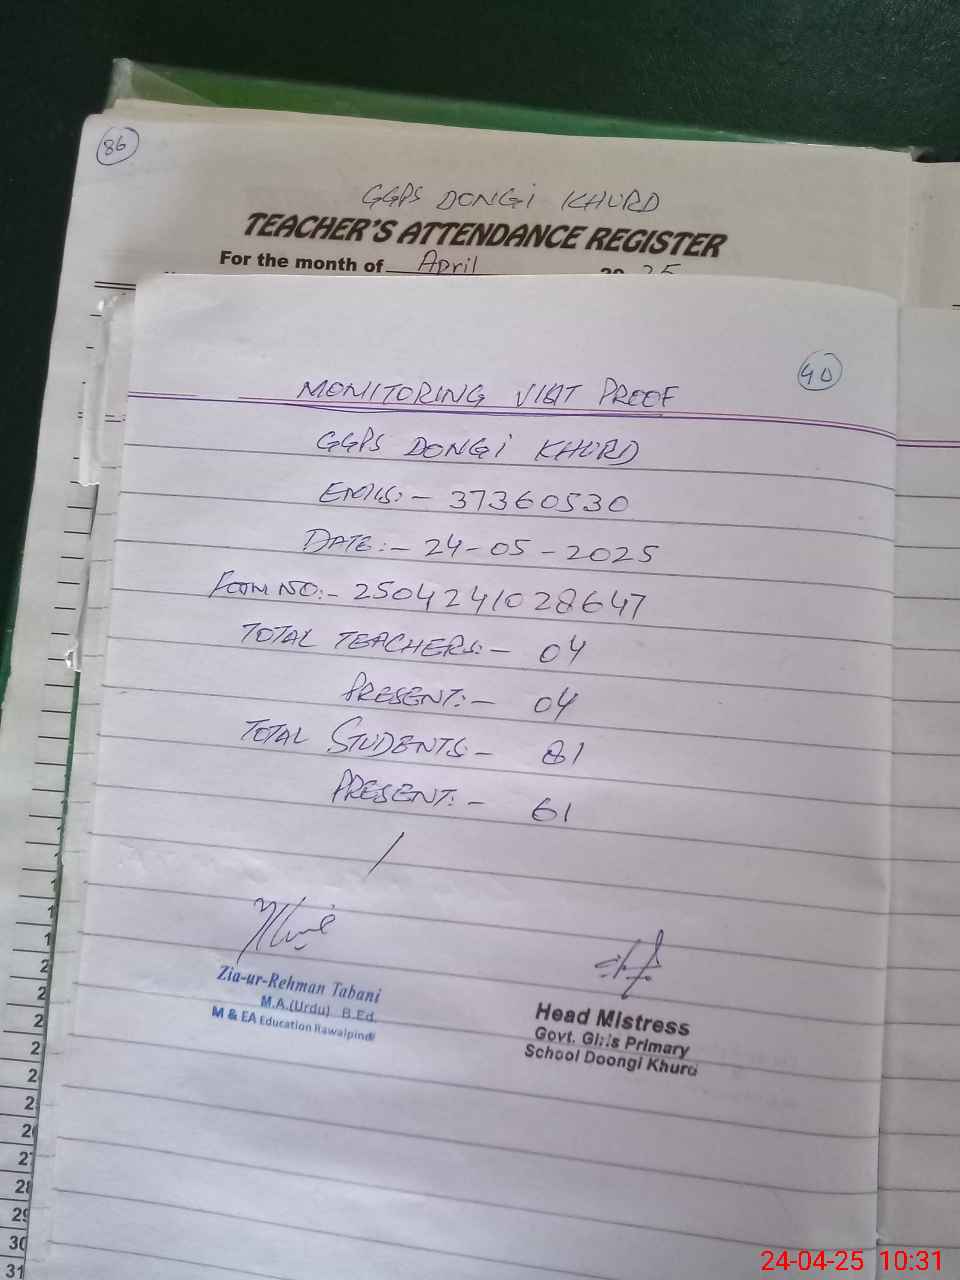 86
GGPS DONGI KHURD
TEACHER'S ATTENDANCE REGISTER
For the month of April 2025
40
MONITORING VISIT PROOF
GGPS DONGI KHURD
EMIS:- 37360530
DATE:- 24-05-2025
FORM NO:- 2504241028647
TOTAL TEACHERS:- 04
PRESENT:- 04
TOTAL STUDENTS:- 81
PRESENT:- 61
Zia-ur-Rehman Tabani
M.A.(Urdu) B.Ed.
M & EA Education Rawalpindi
Head Mistress
Govt. Girls Primary
School Doongi Khurd
1
1
2
2
2
2
2
2
26
27
28
29
30
31
24-04-25 10:31